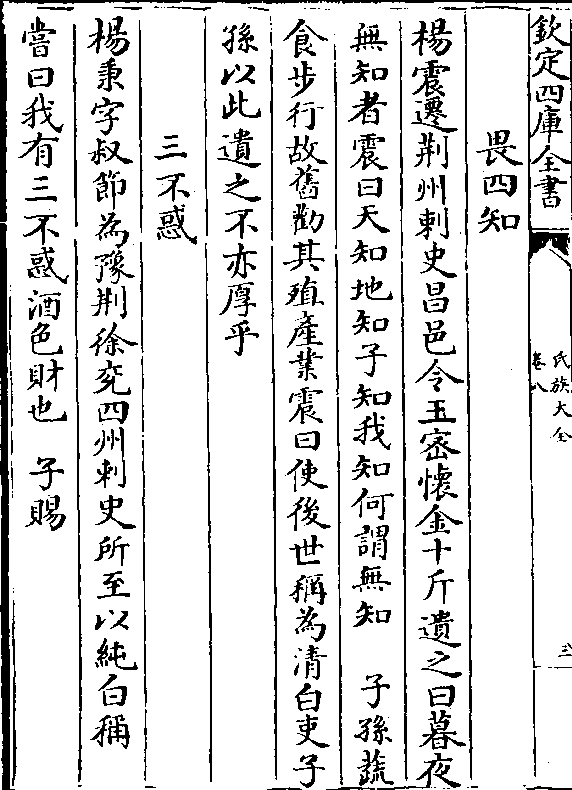 欽定四庫全書
氏族大全
卷八
三
畏四知
楊震遷荆州刺史昌邑令王宻懷金十斤遺之曰暮夜
無知者震曰天知地知子知我知何謂無知 子孫蔬
食步行故舊勸其殖產業震曰使後世稱為清白吏子
孫以此遺之不亦厚乎
三不惑
楊秉字叔節為豫荆徐兗四州刺史所至以純白稱
嘗曰我有三不惑酒色財也 子賜